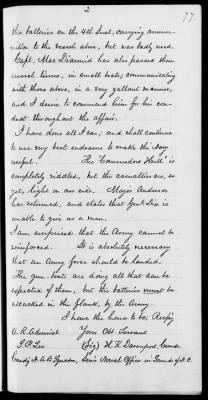 2
77
the batteries on the 4th Inst, carrying ammu-
nition to the vessels above, but was badly used.
Capt. Mac Diarmid has also passed them
several times, in small boats; communicating
with those above, in a very gallant manner,
and I desire to commend him for his con-
duct throughout the affair.
I have done all I can, and shall continue
to use very best endeavors to make the Navy
useful. The "Commodore Hull" is
completely riddled, but the casualties are, as
yet, light on our side. Major Anderson
has returned, and states that Genl Dix is
unable to give us a man.
I am surprised that the Army cannot be
reinforced. It is absolutely necessary
that an Army force should be landed.
The gun-boats are doing all that can be
expected of them, but the batteries must be
attacked in the flank, by the Army.
I have the honor to be, Respy
A. R. Admiral Your Obt. Servant
S. P. Lee (Sig) H. K. Davenport, Comdr.
Comdg N. A. B. Squadron, Senr Naval Officer in Sounds of N. C.